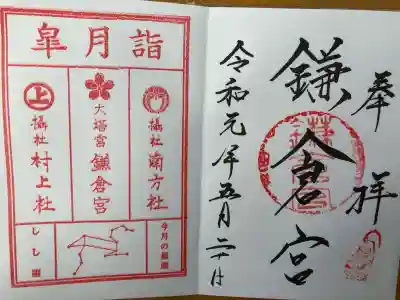 奉拝
鎌倉宮
令和元年五月二十八日
皐月詣
摂社 南方社
大塔宮 鎌倉宮
上
摂社 村上社
今月の星座
しし座